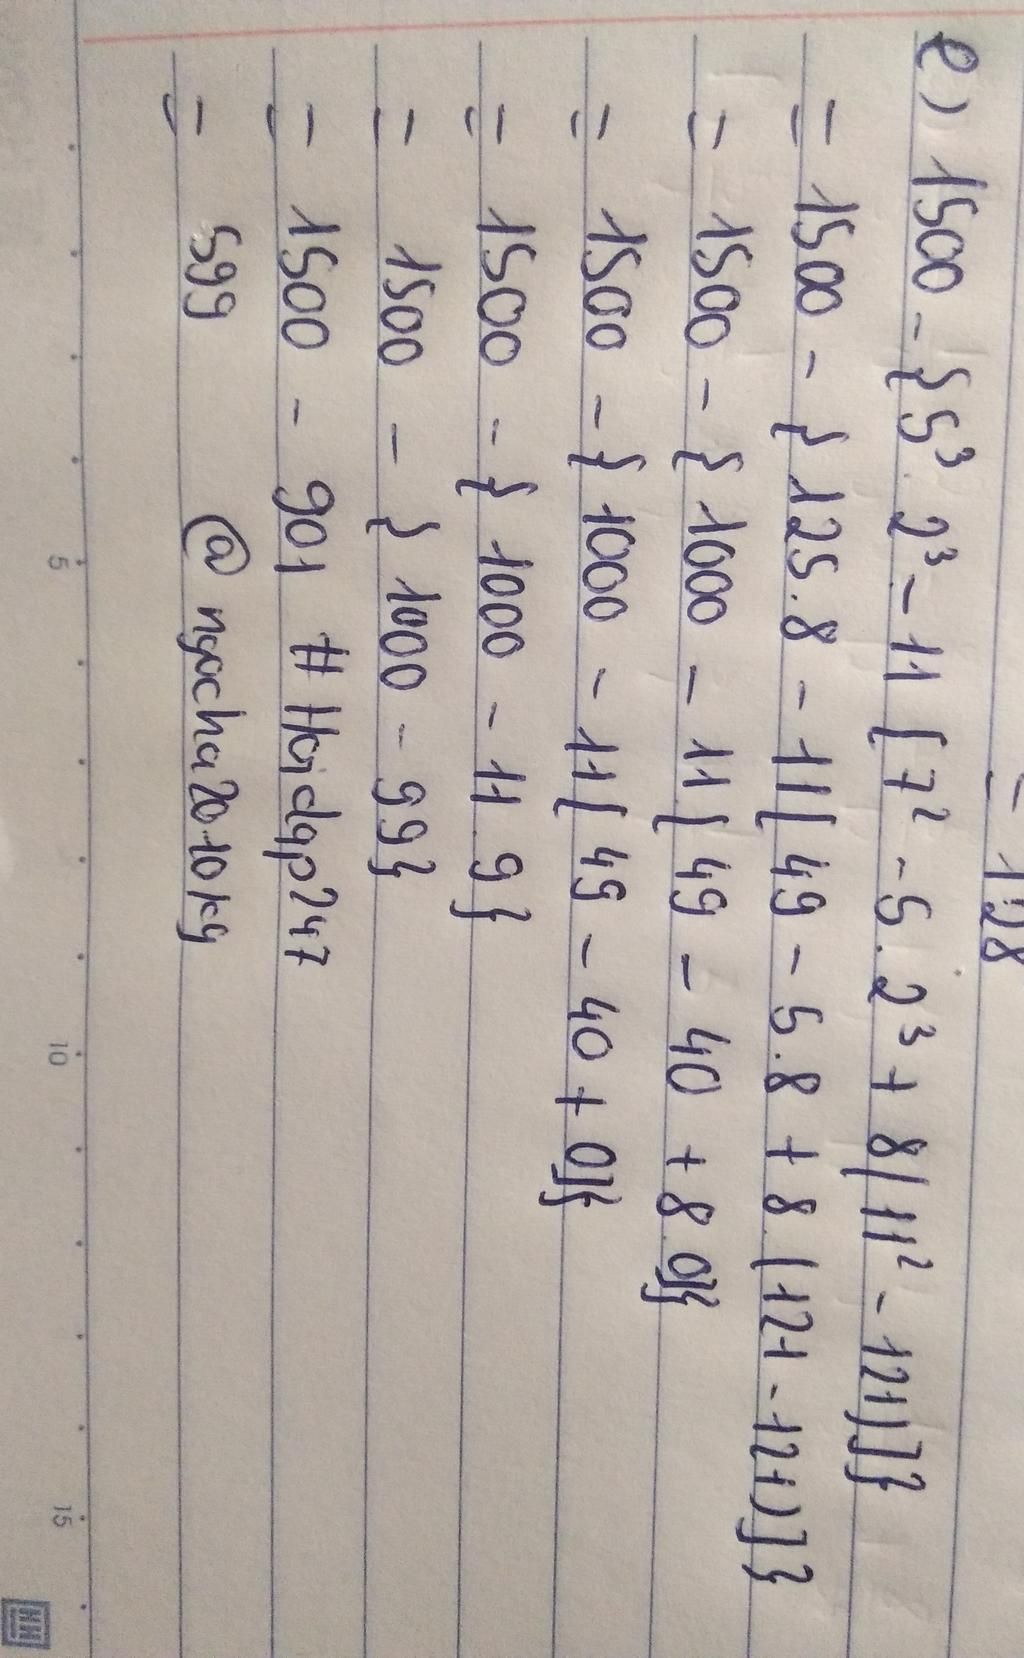 = 128
e) 1500 - {5³.2³ - 11[7² - 5.2³ + 8(11² - 121)]}
= 1500 - {125.8 - 11[49 - 5.8 + 8(121 - 121)]}
= 1500 - {1000 - 11[49 - 40 + 8.0]}
= 1500 - {1000 - 11[49 - 40 + 0]}
= 1500 - {1000 - 11.9}
= 1500 - {1000 - 99}
= 1500 - 901 # Hoidap247
= 599 @ngocha2010kg
5 10 15